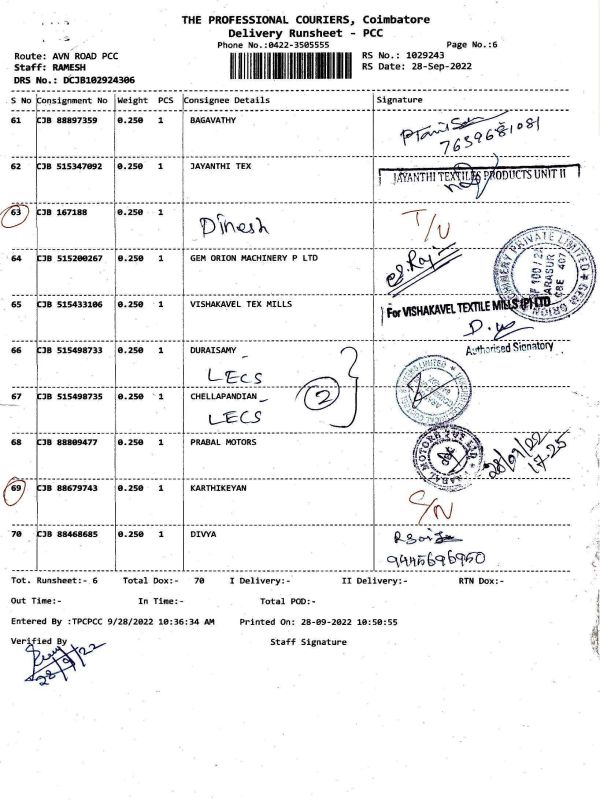 THE PROFESSIONAL COURIERS, Coimbatore
Delivery Runsheet - PCC
Phone No.:0422-3505555 Page No.:6
Route: AVN ROAD PCC RS No.: 1029243
Staff: RAMESH RS Date: 28-Sep-2022
DRS No.: DCJB102924306
S No Consignment No Weight PCS Consignee Details Signature
61 CJB 88897359 0.250 1 BAGAVATHY
7639681081
62 CJB 515347092 0.250 1 JAYANTHI TEX JAYANTHI TEXTILES PRODUCTS UNIT II
63 CJB 167188 0.250 1 Dinesh
64 CJB 515200267 0.250 1 GEM ORION MACHINERY P LTD
65 CJB 515433106 0.250 1 VISHAKAVEL TEX MILLS For VISHAKAVEL TEXTILE MILLS (P) LTD
Authorised Signatory
66 CJB 515498733 0.250 1 DURAISAMY
LECS
2
67 CJB 515498735 0.250 1 CHELLAPANDIAN
LECS
68 CJB 88809477 0.250 1 PRABAL MOTORS
28/09/22
17.25
69 CJB 88679743 0.250 1 KARTHIKEYAN
70 CJB 88468685 0.250 1 DIVYA
9445696950
Tot. Runsheet:- 6 Total Dox:- 70 I Delivery:- II Delivery:- RTN Dox:-
Out Time:- In Time:- Total POD:-
Entered By :TPCPCC 9/28/2022 10:36:34 AM Printed On: 28-09-2022 10:50:55
Verified By Staff Signature
28/9/22